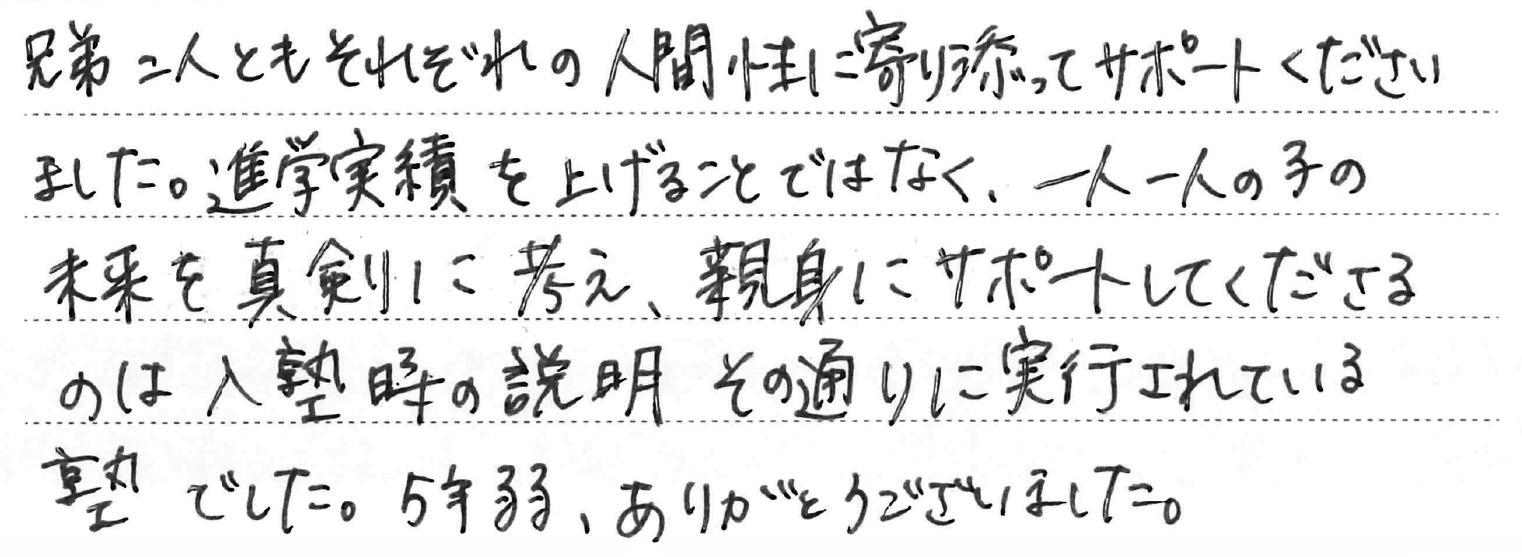 兄弟二人ともそれぞれの人間性に寄り添ってサポートください
ました。進学実績を上げることではなく、一人一人の子の
未来を真剣に考え、親身にサポートしてくださる
のは入塾時の説明その通りに実行されている
塾でした。5年弱、ありがとうございました。